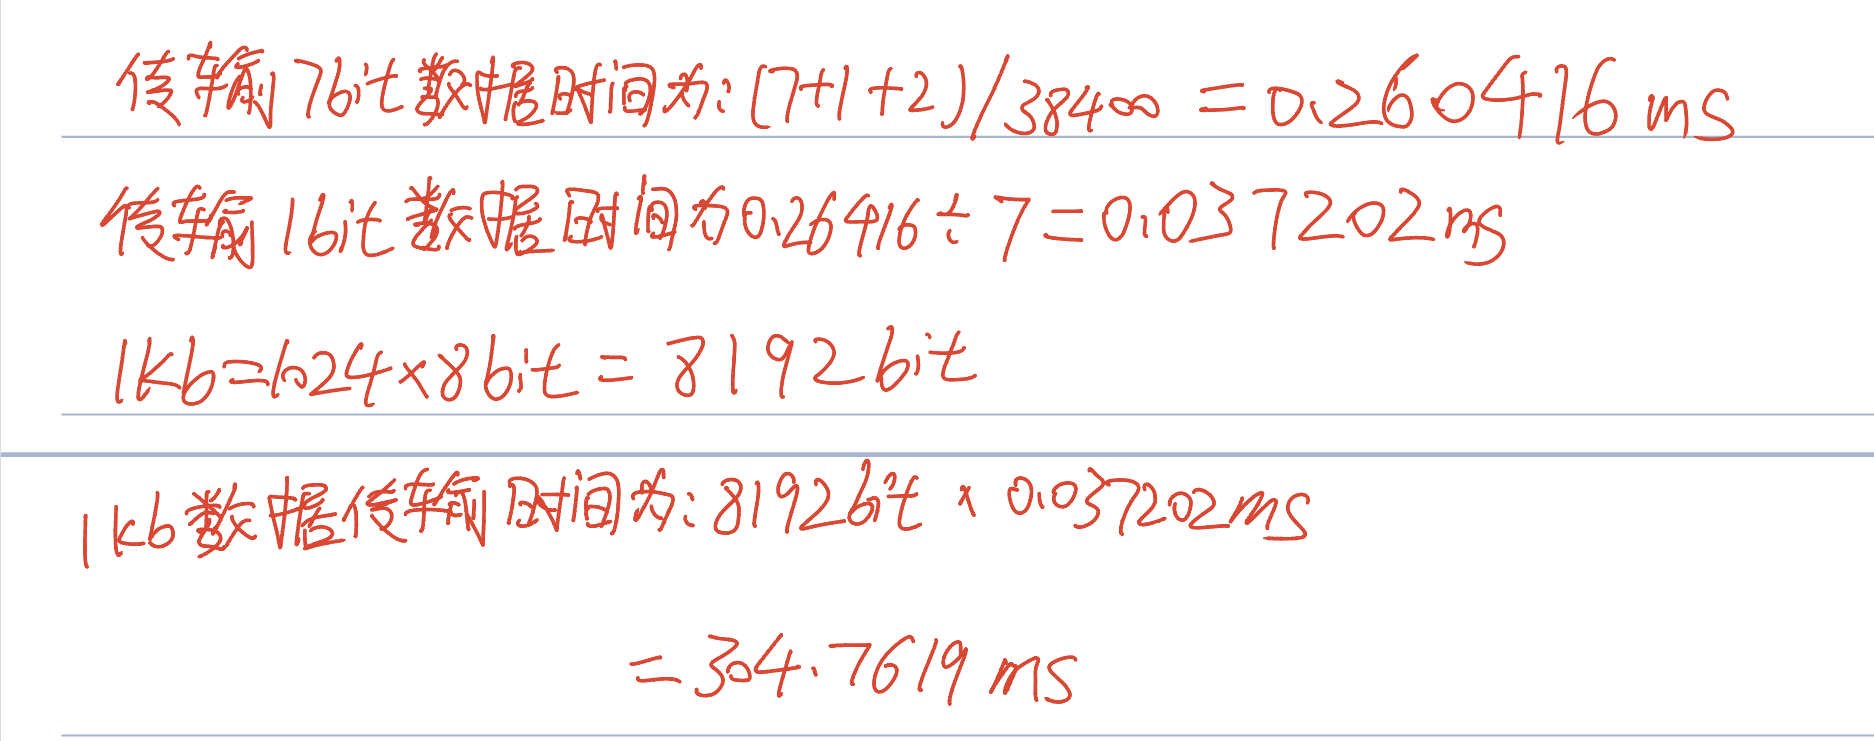 传输7bit数据时间为:(7+1+2)/38400=0.260416ms
传输1bit数据时间为0.26416÷7=0.037202ms
1kb=1024×8bit=8192bit
1kb数据传输时间为:8192bit×0.037202ms
=304.7619ms